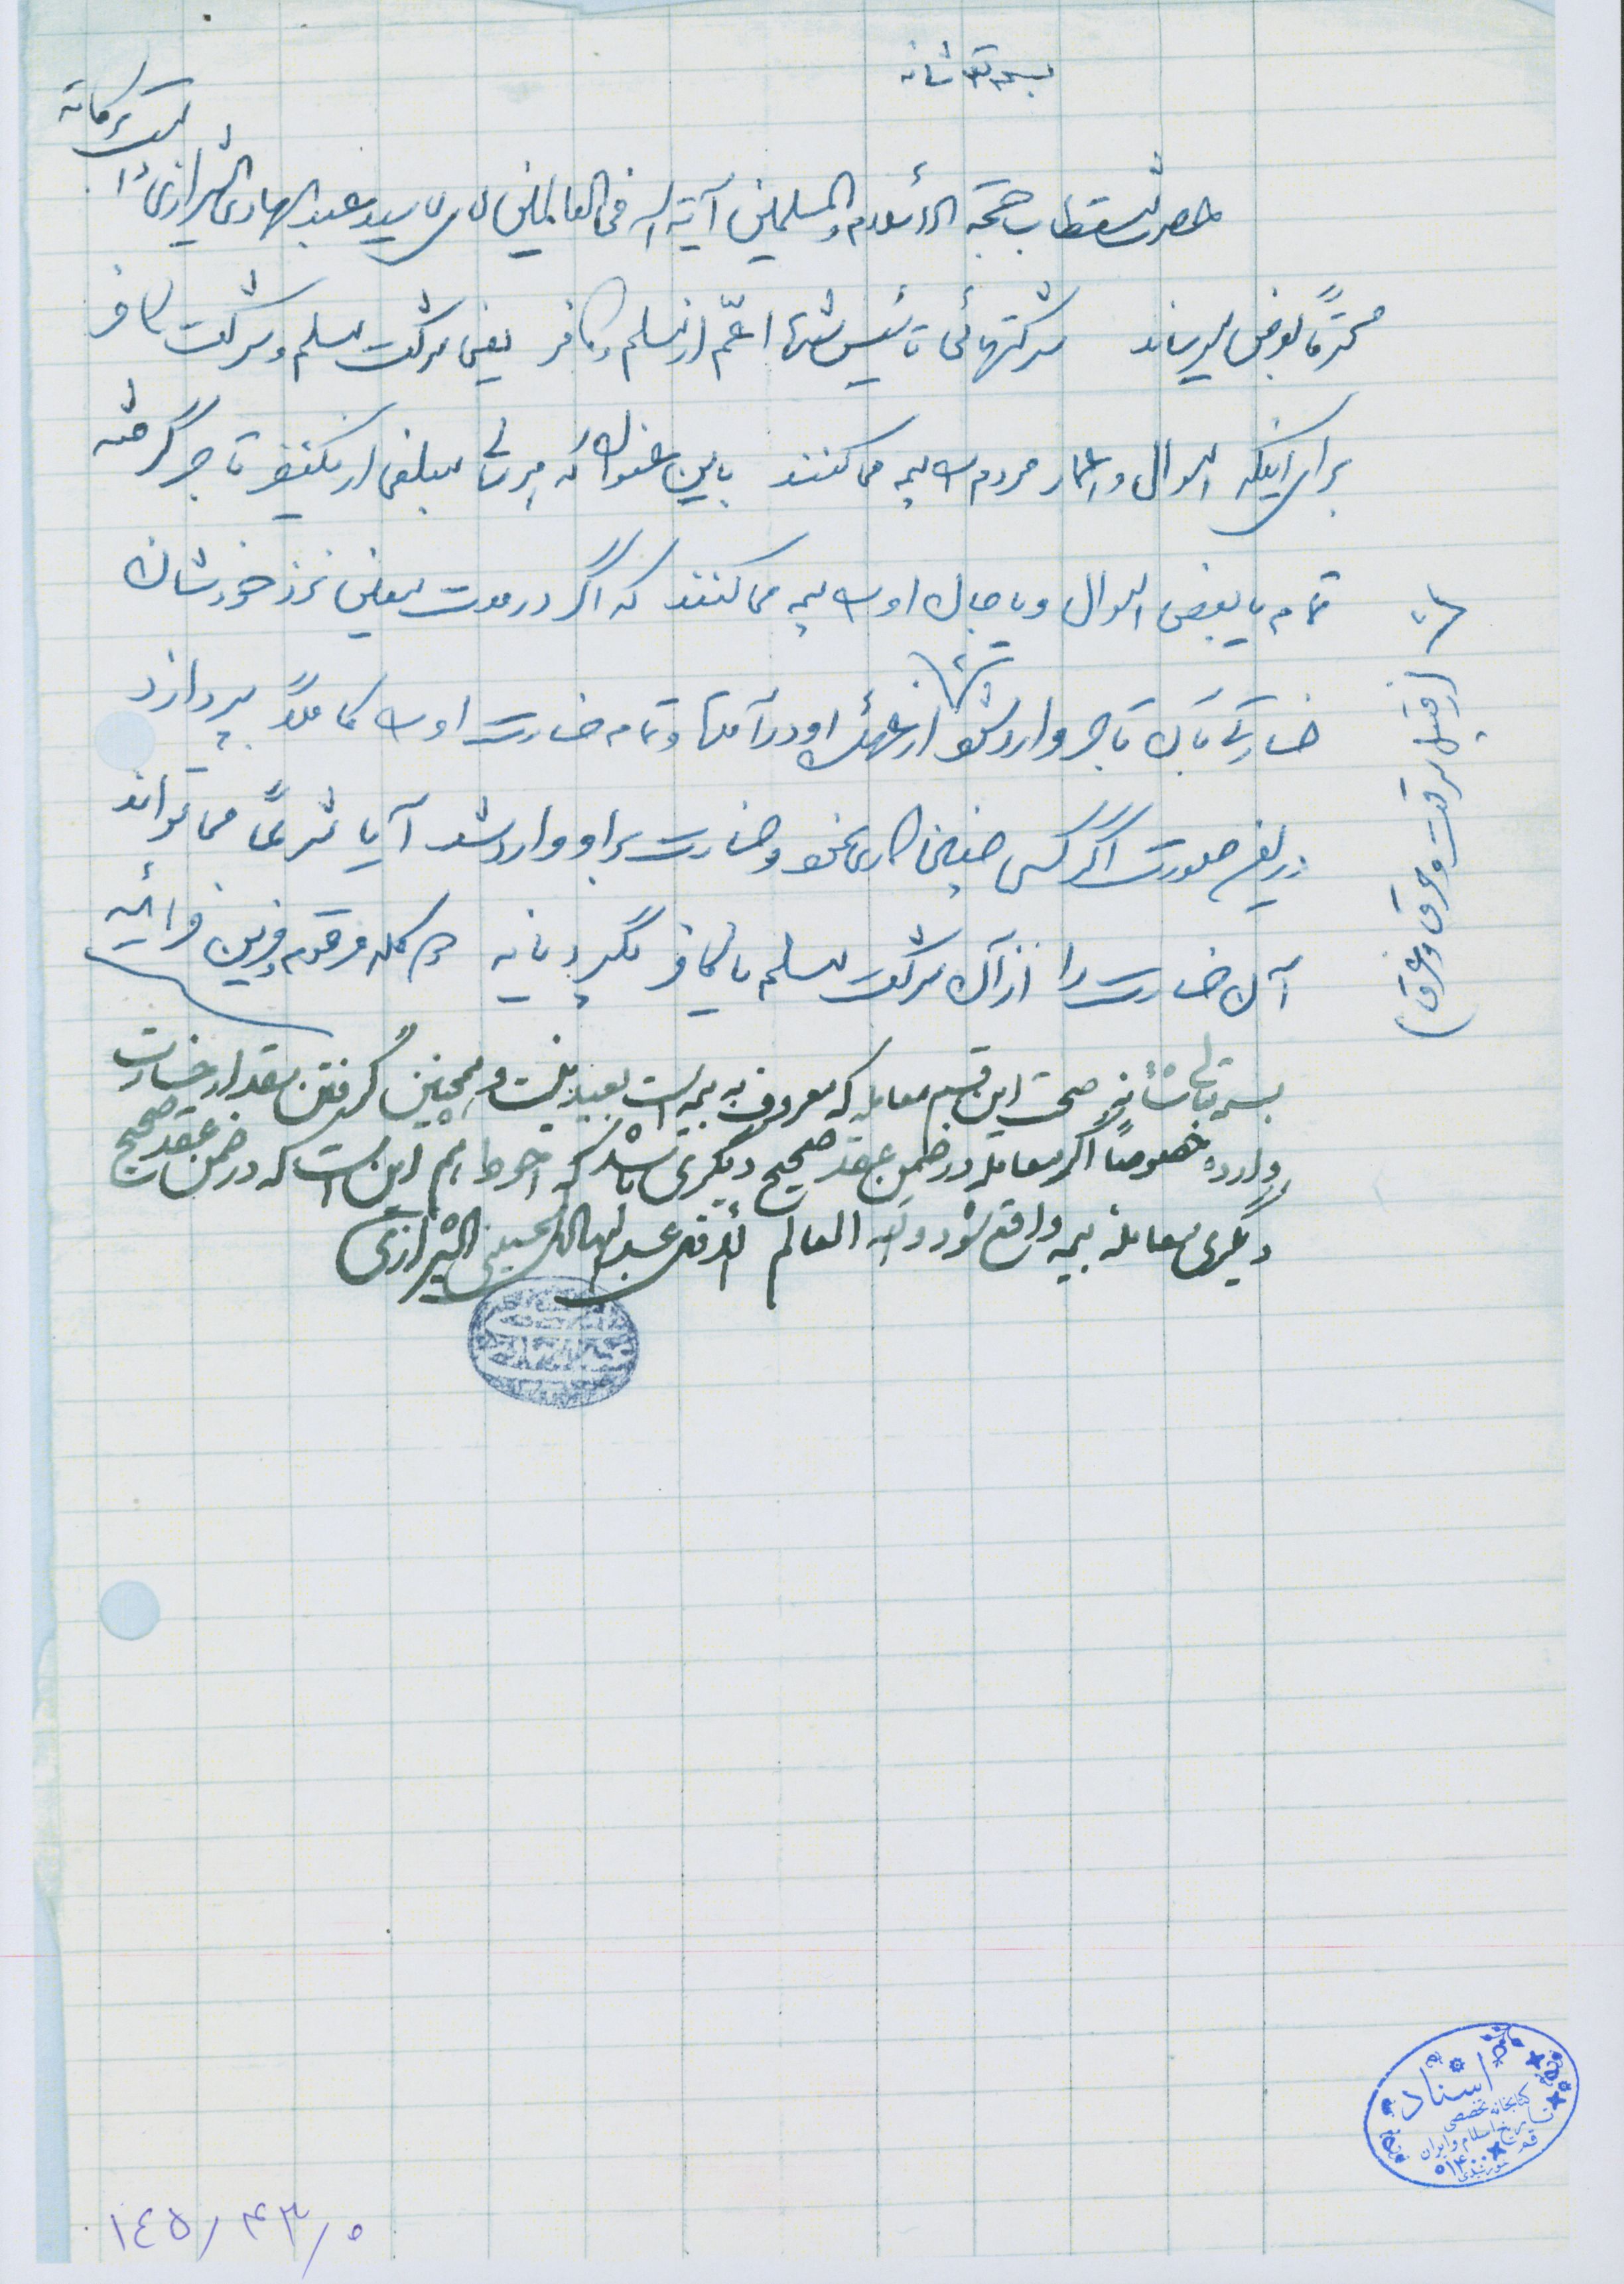 بسمه تعالی شانه
حضرت مستطاب حجة الأسلام والمسلمین آیة الله فی العالمین آقای آقای سید عبدالهادی الشیرازی
برکاته
محترماً بعرض میرساند شرکتهائی تأسیس شده اعمّ از مسلم و کافر یعنی شرکت مسلم و شرکت کافر
برای اینکه اموال و اعمار مردم را بیمه می کنند باین عنوان که هر سالی مبلغی از یکنفر تاجر گرفته
تمام یا بعض اموال و یا جان او را بیمه می کنند که اگر در مدت معین نزد خودشان
خسارتی بآن تاجر وارد شود از عهده او درآمده و تمام خسارت او را کاملاً بپردازد
(از قبیل سرقت و حرق و غرق)
در این صورت اگر کسی چنین کاری نمود و خسارت بر او وارد شد آیا شرعاً می تواند
آن خسارت را از آن شرکت مسلم یا کافر بگیرد یا نه مرقوم و مزین فرمائید
بسمه تعالی شانه صحت این قسم معامله که معروف به بیمه است بعید نیست و همچنین گرفتن مقدار خسارت
وارده خصوصاً اگر معامله در ضمن عقد صحیح دیگری باشد که احوط هم این است که در ضمن عقد صحیح
دیگری معامله بیمه واقع شود والله العالم الأحقر عبدالهادی الحسینی الشیرازی
اسناد
کتابخانه تخصصی
تاریخ اسلام و ایران
قم
۱۴۵/۴۳/۰